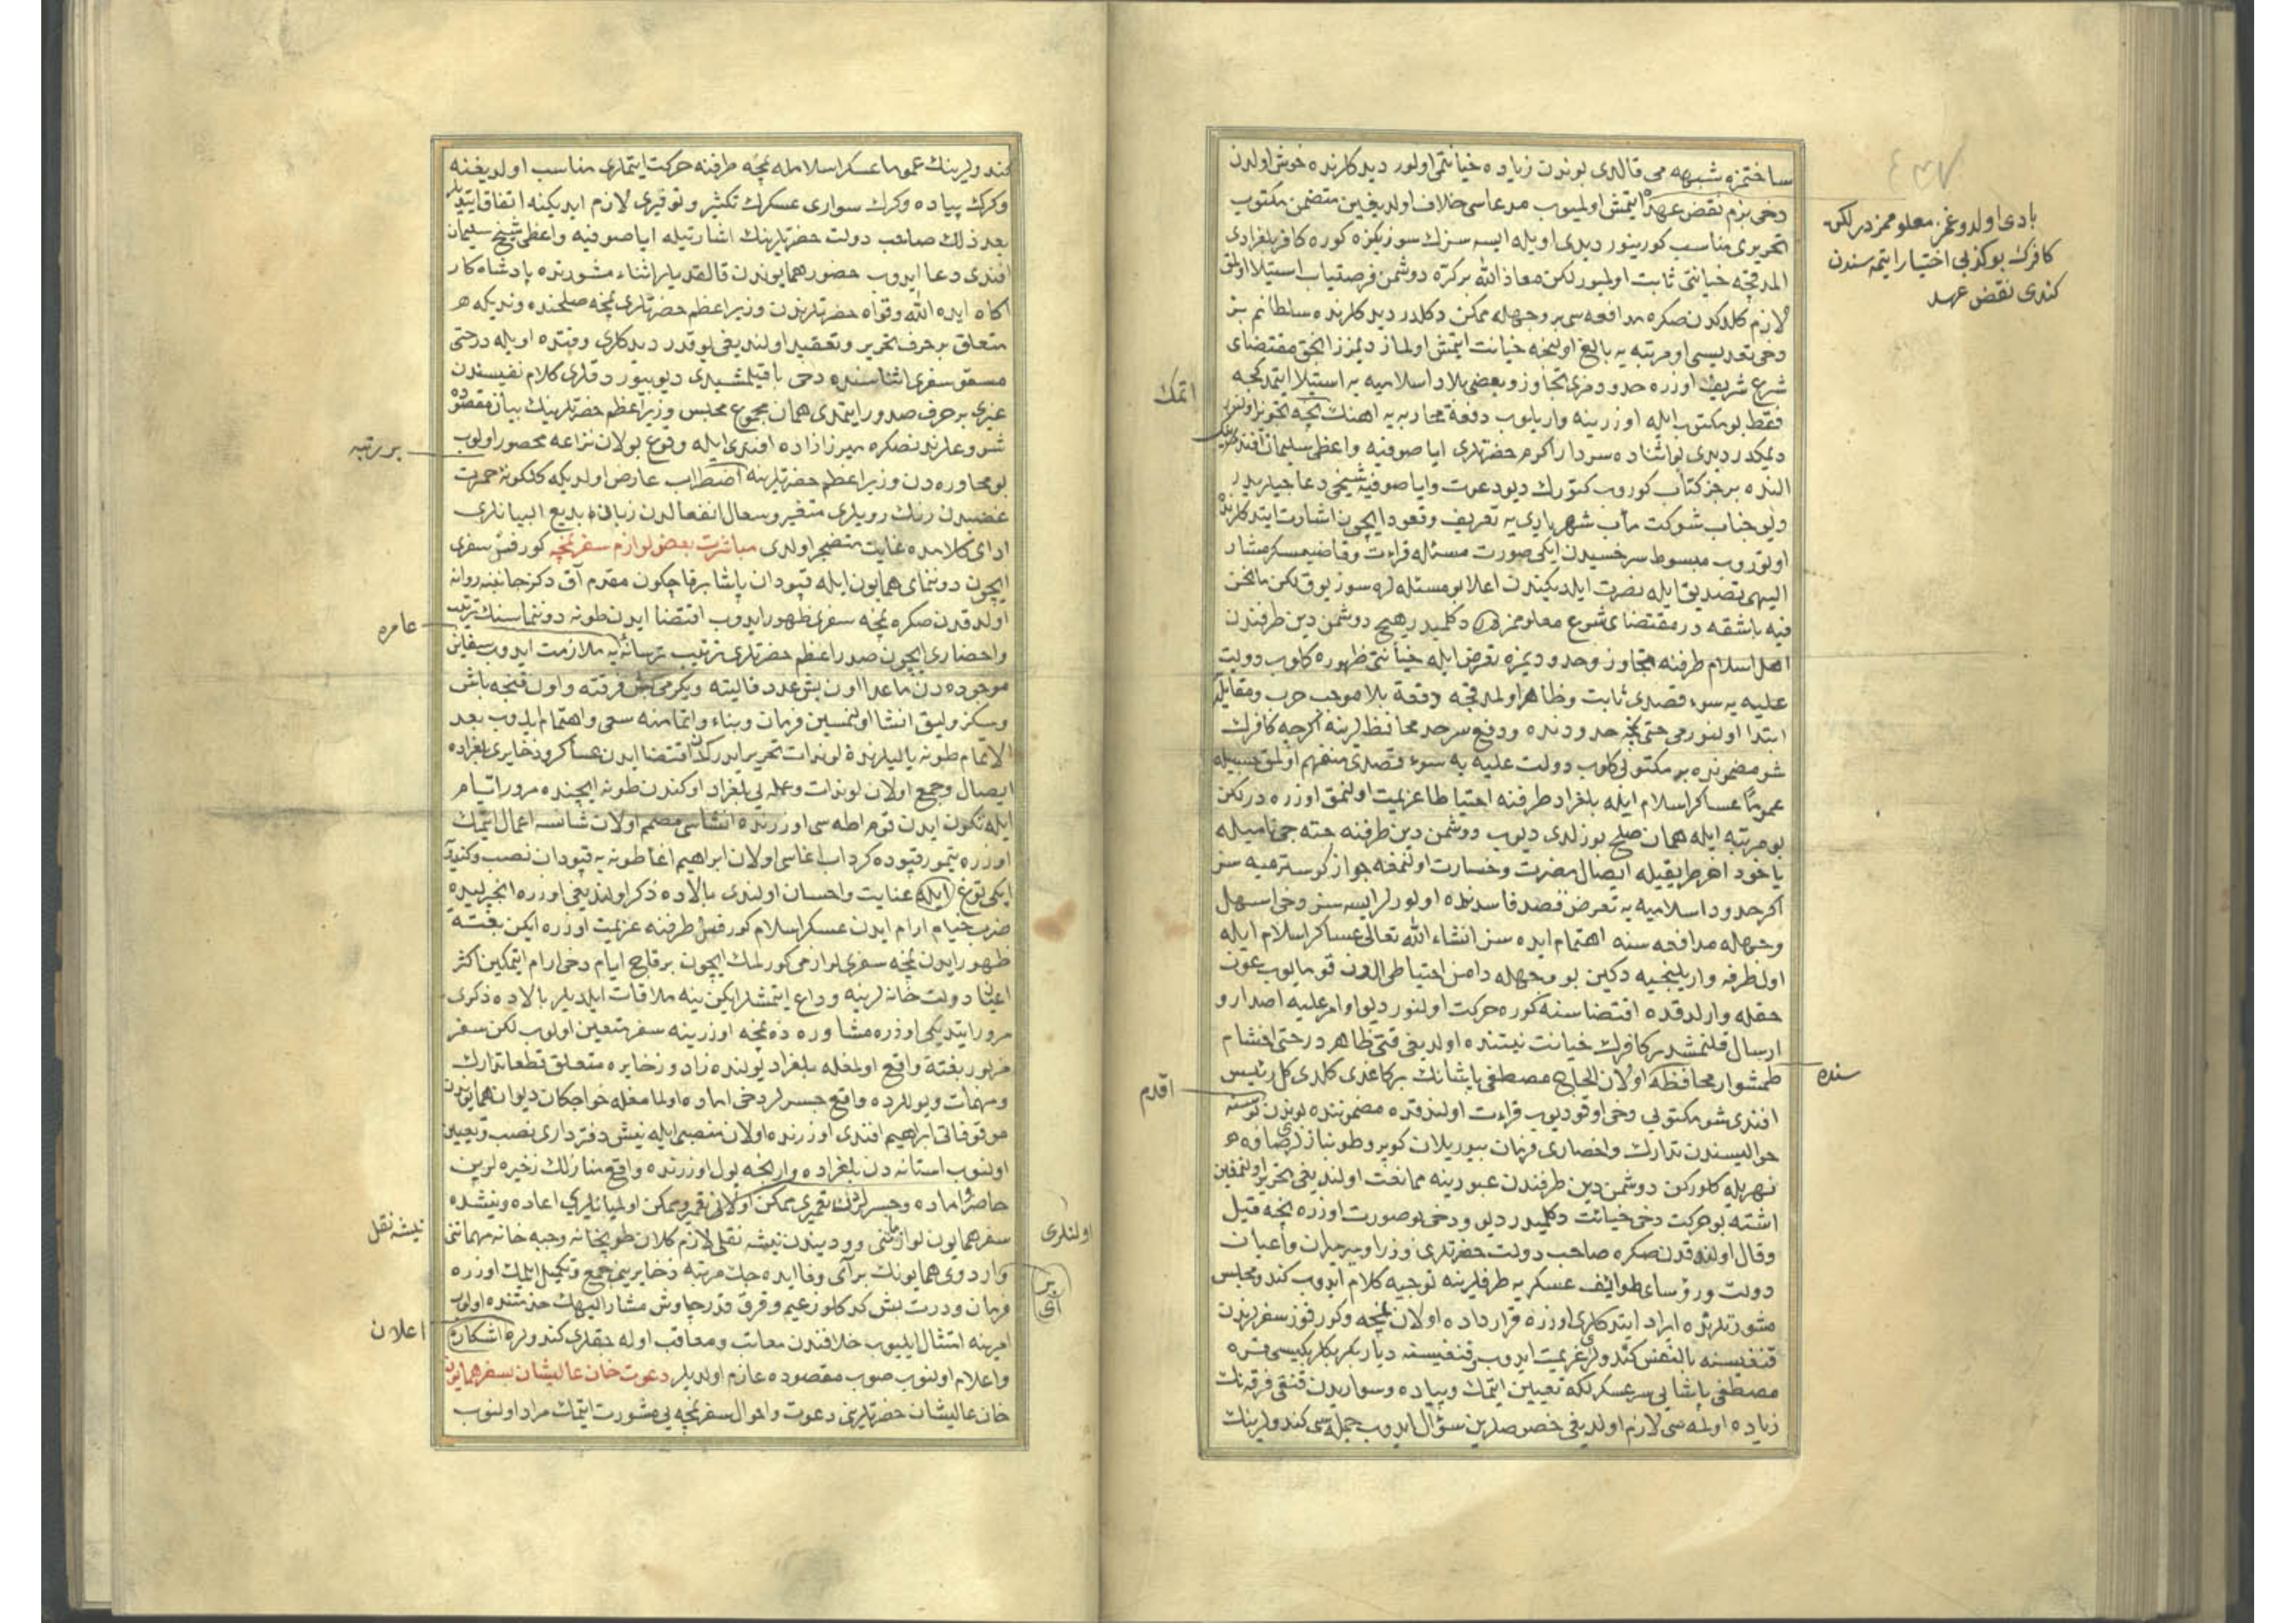 ساختمزه شبهه می قالدی بوندن زیاده خیانتمی اولور دیدكلرنده خوش اولدن
دخی بزم نقض عهد ایتمش اولمیوب مدعاسی خلاف اولدیغین متضمن مكتوب
تحریری مناسب كورینور دیدی اویله ایسه سزك سوزیكزه كوره كافر بلغرادی
المدقجه خیانتی ثابت اولمیور لكن معاذ الله بركره دوشمن فرصتیاب استیلا اولمق
لازم كلدكدن صكره مدافعه سی بر وجهله ممكن دكلدر دیدكلرنده سلطانم بز
دخی تعدیسی او مرتبه یه بالغ اولنجه خیانت ایتمش اولماز دیمزز انجق مقتضای
شرع شریف اوزره حدودمزی تجاوز و بعضی بلاد اسلامیه یه استیلا ایتمدكجه
فقط بو مكتوب ایله اوزرینه واریلوب دفعة محاربه یه اهنك
دیمكدر دیدی بو اثناده سردار اكرم حضرتلری ایا صوفیه واعظی سلیمان افندی
النده بر جز كتاب كوروب كتورك دیو دعوت و ایا صوفیه شیخی دعاجیلریدر
دیو جناب شوكت مأب شهریاری یه تعریف و قعود ایچون اشارت ایتدكلرنده
اوتوروب مبسوط سرخسیدن ایكی صورت مسئله قراءت و قاضیعسكر مشار
الیهی تصدیق ایله نصرت ایلدیكندن اعلا بو مسئله لره سوز یوق لكن مانحن
فیه باشقه در مقتضای شرع معلوممز دكلمیدر هیچ دوشمن دین طرفندن
اهل اسلام طرفنه تجاوز و حدودیمزه تعرض ایله خیانتی ظهوره كلوب دولت
علیه یه سوء قصدی ثابت و ظاهر اولمدقجه دفعة بلا موجب حرب و مقابله
ابتدا اولنورمی حتی نمچه حدودنده واقع سرحد محافظلرینه اكرچه كافرك
شو مضمونده بر مكتوبی كلوب دولت علیه یه سوء قصدی منفهم اولمق حسبیله
عموما عساكر اسلام ایله بلغراد طرفنه احتیاطا عزیمت اولنمق اوزره در لكن
بو مرتبه ایله همان صلح بوزلدی دیوب دوشمن دین طرفنه حته جی نامیله
یاخود اخر طریقیله ایصال مضرت و خسارت اولنمغه جواز كوسترمیه سز
اكر حدود اسلامیه یه تعرض قصد فاسدنده اولورلر ایسه سز دخی اسهل
وجهله مدافعه سنه اهتمام ایده سز انشاء الله تعالی عساكر اسلام ایله
اول طرفه واریلنجیه دكین بو وجهله دامن احتیاطی الدن قومایوب عون
حقله وارلدقده اقتضاسنه كوره حركت اولنور دیو اوامر علیه اصدار و
ارسال قلنمشدر كافرك خیانت نیتنده اولدیغی قتی ظاهردر حتی اخشام
طمشوار محافظه اولان الحاج مصطفی پاشانك بر كاغدی كلدی كل رئیس
افندی شو مكتوبی دخی اوقو دیوب قراءت اولندقده مضموننده بوندن
حوالیسندن تدارك و احضاری فرمان بیوریلان كوبرو طونبازلری
نهریله كلوركن دوشمن دین طرفندن عبورینه ممانعت اولندیغی تحریر اولنمغین
اشته بو حركت دخی خیانت دكلمیدر دیو و دخی بو صورت اوزره نیجه قیل
و قال اولندقدن صكره صاحب دولت حضرتلری وزرا و میرمیران و اعیان
دولت و رؤسای طوائف عسكریه طرفلرینه توجیه كلام ایدوب كندو مجلس
مشورتلرنده ایراد ایتدكلری اوزره قرارداده اولان نمچه و كورفوز سفرلرندن
قنغیسنه بالنفس كندولری عزیمت ایدوب و قنغیسنه دیاربكر بكلربكیسی قره
مصطفی پاشایی سرعسكرلكه تعیین ایتمك و پیاده و سواریدن قنغی فرقه نك
زیاده اولمه سی لازم اولدیغی خصوصلرین سؤال ایدوب جمله سی كندولرینك
بادی اولدوغمز معلوممزدر لكن
كافرك بو كذبی اختیار ایتمه سندن
كندی نقض عهد
اتمك
سنده
اقدم
كندولرینك عموما عسكر اسلامله نمچه طرفنه حركت ایتملری مناسب اولدیغنه
و كرك پیاده و كرك سواری عسكرك تكثیر و توفیری لازم ایدیكنه اتفاق ایتدیلر
بعد ذلك صاحب دولت حضرتلرینك اشارتیله ایا صوفیه واعظی شیخ سلیمان
افندی دعا ایدوب حضور همایوندن قالقدیلر اثناء مشورتده پادشاه كار
اكاه ایده الله و قواه حضرتلرندن وزیر اعظم حضرتلری نمچه صلحنده
متعلق بر حرف تحریر و تعقید اولندیغی یوقدر دیدكلری وقتده اویله در حتی
مسقو سفری اثناسنده دخی باقیلمشیدی دیو بیوردقلری كلام نفیسندن
غیری بر حرف صدور ایتمدی همان مجموع مجلس وزیر اعظم حضرتلرینك بیان مقصوده
شروعلرندنصكره میرزا زاده افندی ایله وقوع بولان نزاعه محصور اولوب
بو محاوره دن وزیر اعظم حضرتلرینه اضطراب عارض اولدیكه كلكونه حمرت
غضبدن رنك رویلری متغیر و سعال انفعالدن زبان بدیع البیانلری
ادای كلامده غایت متضجر اولدی مباشرت بعض لوازم سفر نمچه كورفس سفری
ایچون دوننمای همایون ایله قپودان پاشا برقاچ كون مقدم آق دكز جانبنه روانه
اولدقدن صكره نمچه سفری ظهور ایدوب اقتضا ایدن طونه دوننماسنك ترتیب
و احضاری ایچون صدر اعظم حضرتلری ترتیب ترسانه یه ملازمت ایدوب سفاین
موجوده دن ماعدا اون بش عدد قالیته و یكرمی بش فرقته و اون قنجه باش
و سكز ولیق انشا اولنمسین فرمان و بناء و اتمامنه سعی و اهتمام ایدوب بعد
الاتمام طونه یالیلرنده لوندات تحریر ایدركن اقتضا ایدن عساكر و ذخایری بلغراده
ایصال و جمع اولان لوندات و عمله یی بلغراد اوكندن طونه ایچنده مرور ایام
ایله تكون ایدن قوم اطه سی اوزرنده انشاسی مصمم اولان شانسه اعمال ایتمك
اوزره تیمورقپوده كرداب اغاسی اولان ابراهیم اغا طونه یه قپودان نصب و كندویه
ایكی توغ ایله عنایت و احسان اولندی بالاده ذكر اولندیغی اوزره انجرلیده
ضرب خیام ارام ایدن عسكر اسلام كورفس طرفنه عزیمت اوزره ایكن بغتة
ظهور ایدن نمچه سفری لوازمی كورلمك ایچون برقاچ ایام دخی ارام ایتمكین اكثر
اعیان دولت خانه لرینه وداع ایتمشلر ایكن ینه ملاقات ایلدیلر بالاده ذكری
مرور ایتدیكی اوزره مشاوره ده نمچه اوزرینه سفر متعین اولوب لكن سفر
مزبور بغتة واقع اولمغله بلغراد یولنده زاد و زخایره متعلق قطعا تدارك
و مهمات و یوللرده واقع جسرلر دخی اماده اولمامغله خواجكان دیوان همایوندن
موقوفاتی ابراهیم افندی اوزرنده اولان منصبی ایله نیش دفترداری نصب و تعیین
اولنوب استانه دن بلغراده وارنجه یول اوزرنده واقع منازلك زخیره لرین
حاضر و اماده و جسرلرك تعمیری ممكن اولانی تعمیر و ممكن اولمیانلری اعاده و نیشده
سفر همایون لوازمنی و ودیندن نیشه نقلی لازم كلان طوبخانه و جبه خانه مهماتنی
و اردوی همایونك بر آی وفا ایده جك مرتبه ذخایرینی جمع و تكمیل ایلمك اوزره
فرمان و درت بش كدكلو زعیم و قرق قدر چاوش مشار الیهك خدمتنده اولوب
امرینه امتثال ایلمیوب خلافندن معاتب و معاقب اوله جقلری كندولره اشكاره
و اعلام اولنوب صوب مقصوده عازم اولدیلر دعوت خان عالیشان بسفر همایون
خان عالیشان حضرتلرینی دعوت و احوال سفر نمچه یی مشورت ایتمك مراد اولنوب
بر رتبه
عامره
نیشه نقل
اعلان
اولنلری
بر
آی